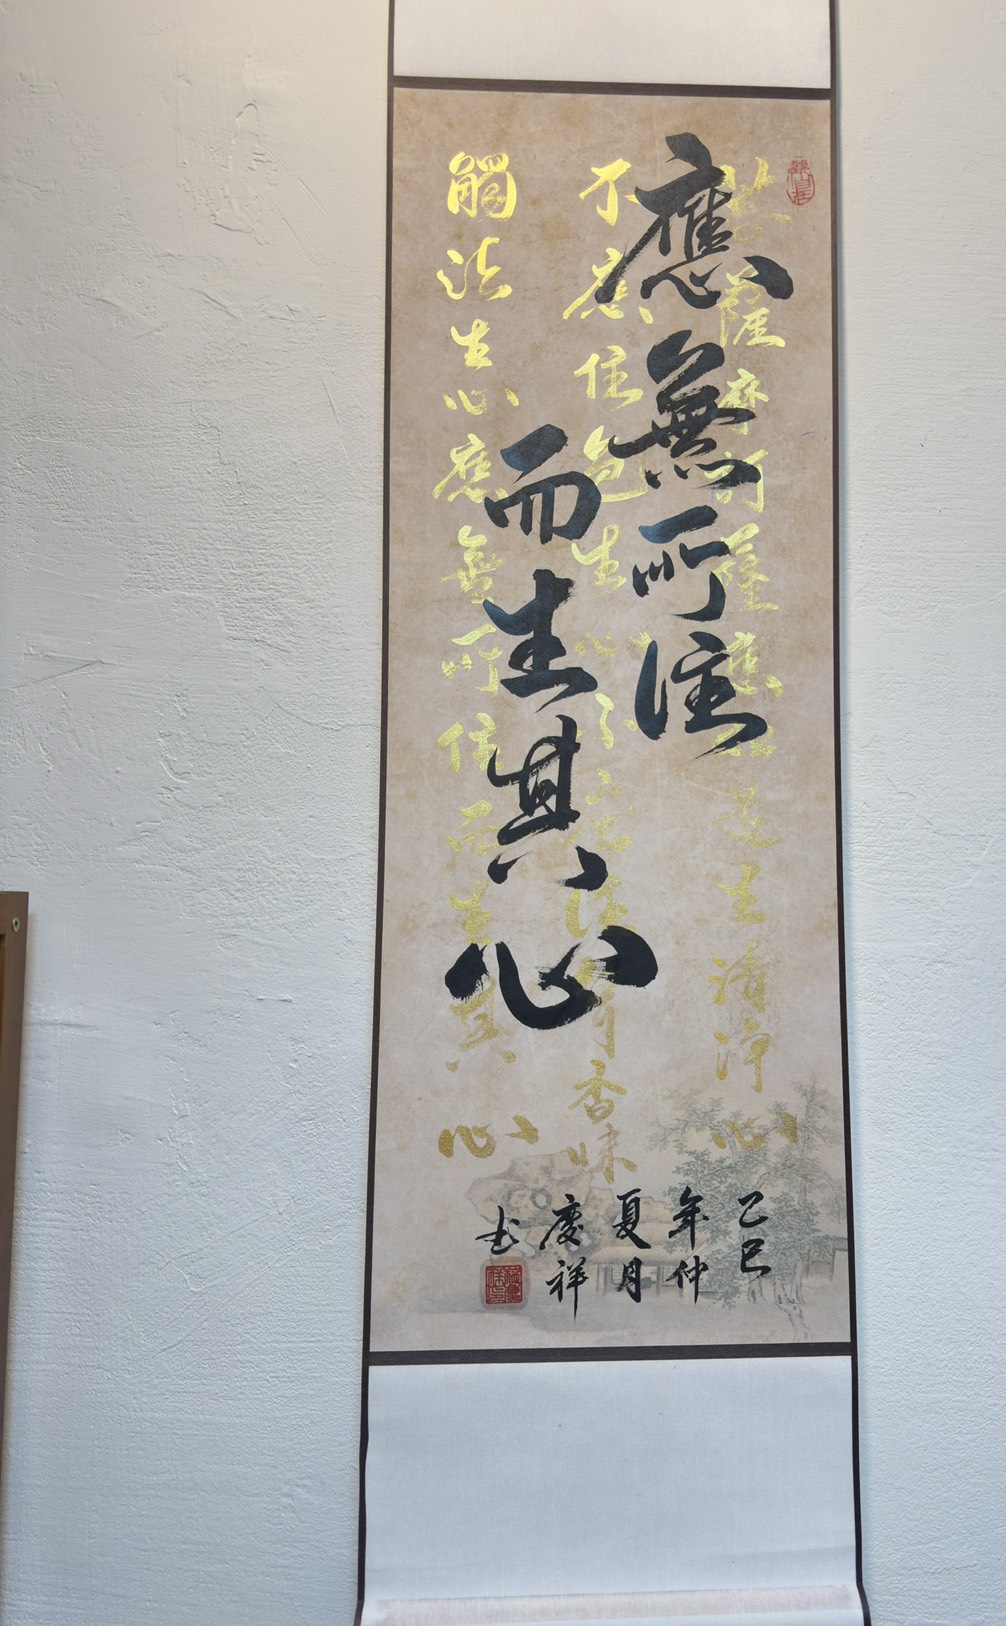 應無所住
而生其心
菩薩摩訶薩應如是生清淨心
不應住色生心不應住聲香味
觸法生心應無所住而生其心
乙巳
年仲
夏月
慶祥
书